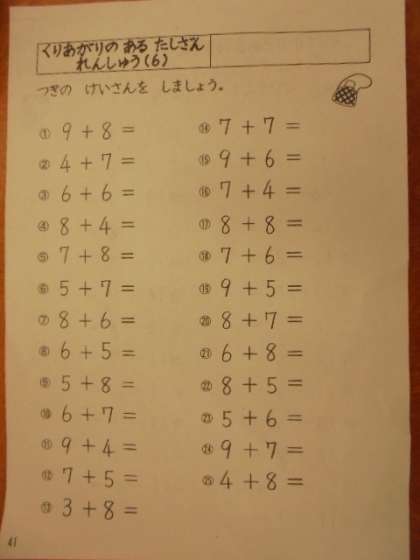 くりあがりの ある たしざん
れんしゅう(6)
つぎの けいさんを しましょう。
① 9+8=
② 4+7=
③ 6+6=
④ 8+4=
⑤ 7+8=
⑥ 5+7=
⑦ 8+6=
⑧ 6+5=
⑨ 5+8=
⑩ 6+7=
⑪ 9+4=
⑫ 7+5=
⑬ 3+8=
⑭ 7+7=
⑮ 9+6=
⑯ 7+4=
⑰ 8+8=
⑱ 7+6=
⑲ 9+5=
⑳ 8+7=
㉑ 6+8=
㉒ 8+5=
㉓ 5+6=
㉔ 9+7=
㉕ 4+8=
41